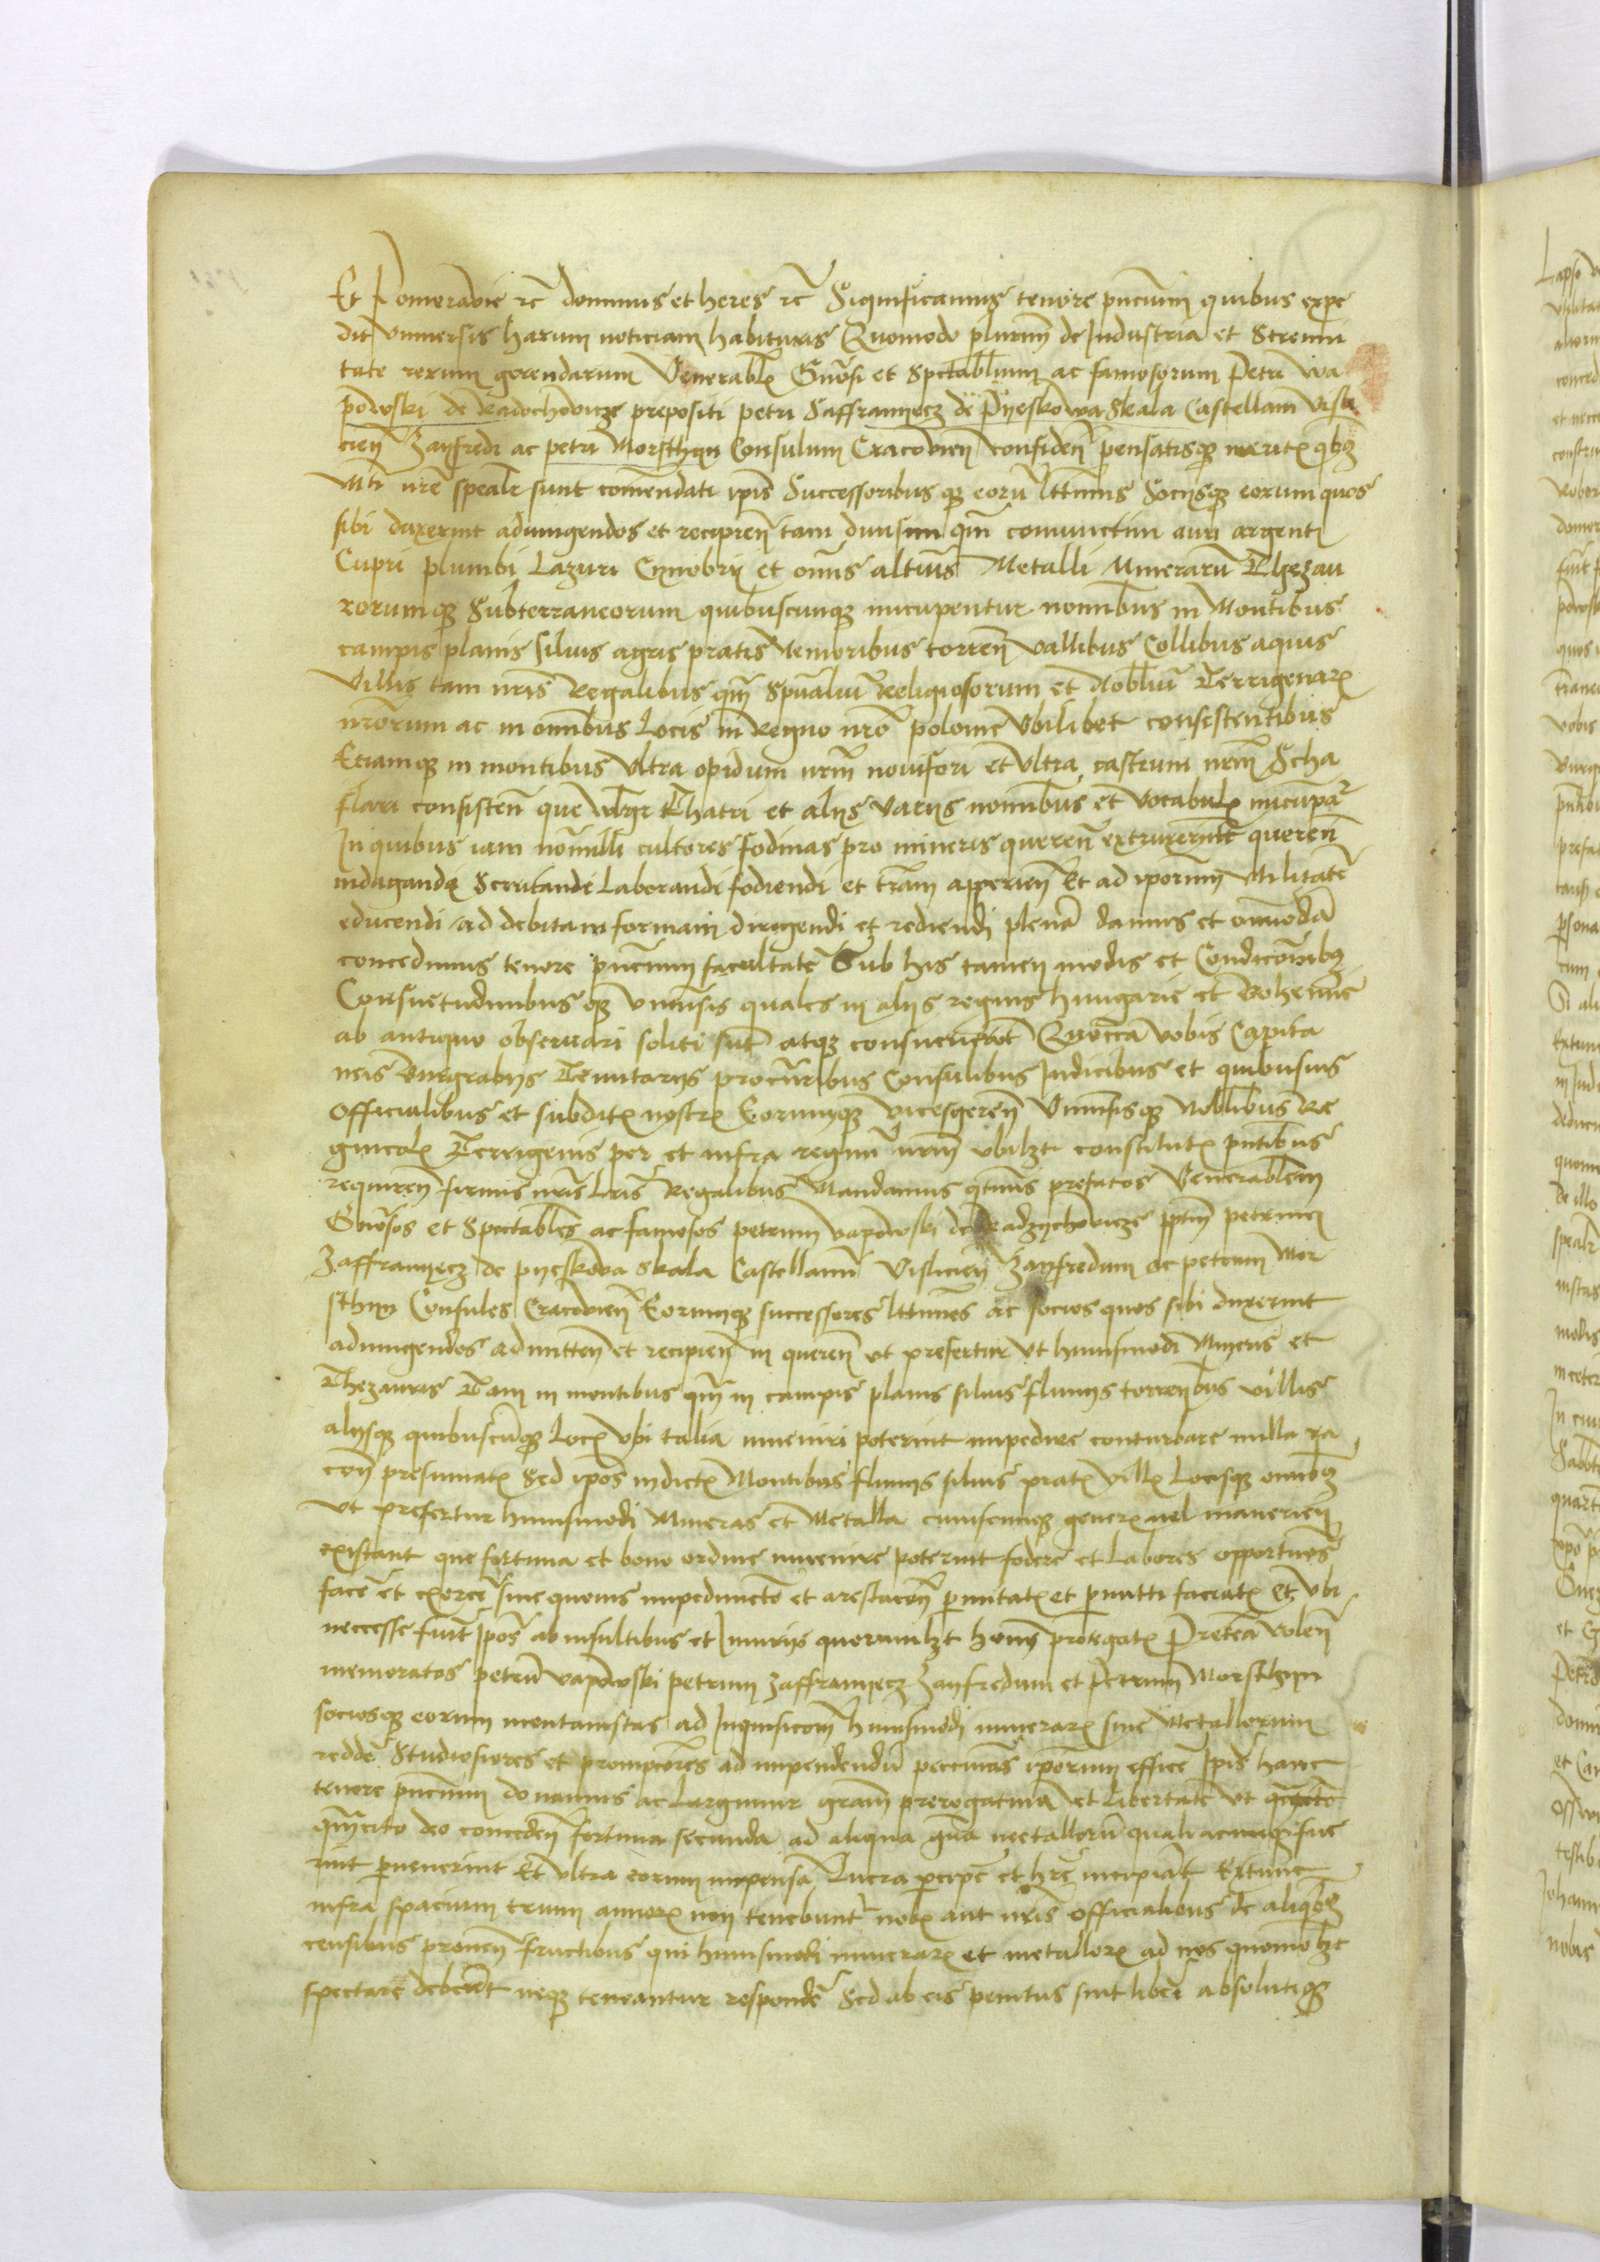 Et Pomeranie rc dominus et heres rc Significamus tenore pncium quibus expe
dit vniuersis harum noticiam habituris Quomodo plurim de Industria et Strenui
tate rerum gerendarum Venerabl Gnosi et Spctabilium ac famosorum Petri wa
powski de Radochovicze prepositi petri Saffranyecz de Pyeskowa Skala Castellani Visli
cien Zayfredi ac petri Morsthyn Consulum Cracovien confiden pensatisq meritx qbz
Mti nre spealr sunt comendati ipis Successoribusq eoru lttimis Sociisq eorum quos
sibi duxerint adiungendos et recipien tam diuisim qm coniunctim auri argenti
Cupri plumbi Lazuri Cynobrij et omis alterius Metalli Mineraru Thezau
rorumq Subterraneorum quibuscunq nucupentur nominibus in Montibus
campis planis siluis agris pratis Nemoribus torren vallibus Collibus aquis
Villis tam nris Regalibus qm Spualiu Religiosorum et Nobliu Terrigenarx
nrorum ac in omnibus Locis in Regno nro polonie Vbilibet consistentibus
Eciamq in montibus Vltra opidum nrm nouifori et Vltra castrum nrm Scha
flari consisten que wlgr Thatri et alijs Varijs nominibus et vocabulx nucupar
In quibus iam nonnulli cultores fodinas pro mineris queren extruxerunt queren
indagandi Scrutandi Laborandi fodiendi et tram apperien Et ad iporum Vtilitate
educendi ad debitam formam dirigendi et rediendi plena damus et omoda
concedimus tenore pncium facultate Sub his tamen modis et Condicoibz
Consuetudinibusq vniuersis quales in alijs regnis hungarie et Bohemie
ab antiquo obseruari soliti sut atq consueuerunt Quocca vobis Capita
neis Burgrabijs Tenutarijs procuribus Consulibus Iudicibus et quibusuis
Officialibus et subditx nostrx Eorumq vicesgeren Vniuersisq Noblibus Re
gnicolx Terrigenis per et infra regnu nrm vbilzt constitutx pntibus
requiren firmis nris lris Regalibus Mandamus qtinus prefatos Venerablem
Gnosos et Spectabiles ac famosos petrum vapowski de Radzychovicze pptm petrum
Zaffranyecz de pyeskova Skala Castellanu Vislicien Zayfredum ac petrum Mor
sthyn Consules Cracovien Eorumq successores lttimos ac socios quos sibi duxerint
adiungendos admitten et recipien in queren vt prefertur vt huiusmodi Mineris et
Thezauris Tam in montibus qm in campis planis siluis fluuijs torrentibus villis
alijsq quibuscuq Locx vbi talia inueniri poterint impedire conturbare nulla ra
con presumatx Sed ipos in dictx Montibus fluuijs siluis pratx villx Locisq omibz
Vt prefertur huiusmodi Mineras et Metalla cuiuscunq generx vel maneriei
existant que fortuna et bono ordine inuenire poterint fodere et Labores opportunos
face et exerce sine quouis impedimeto et arestacon pmitatx et pmitti faciatx Et vbi
neccesse fuit Ipos ab insultibus et Iniurijs quorumlzt homi protegatx Preterea volen
memoratos petru vapowski petrum Zaffranyecz Zayfredum et Petrum Morsthyn
sociosq eorum montanistas ad Inquisicom huiusmodi minerarx siue Metallorum
redde Studiosiores et promptiores ad impendendu pecunias iporum effice Ipis hanc
tenore pncium donamus ac Largimur gram prerogatiua et Libertate vt
qmcito deo conceden fortuna secunda ad aliqua gna metalloru qualiacunq fue
rint puenerint Et Vltra eorum impensa Lucra pcipe et hre incipiat Extunc
infra spacium trium annorx non tenebunt nobx aut nris Officialibus de aliqbz
censibus prouen fructibus qui huiusmodi minerarx et metallorx ad nos quomolzt
spectare debeant neq teneantur responde Sed ab eis penitus sint liberi absolutiq